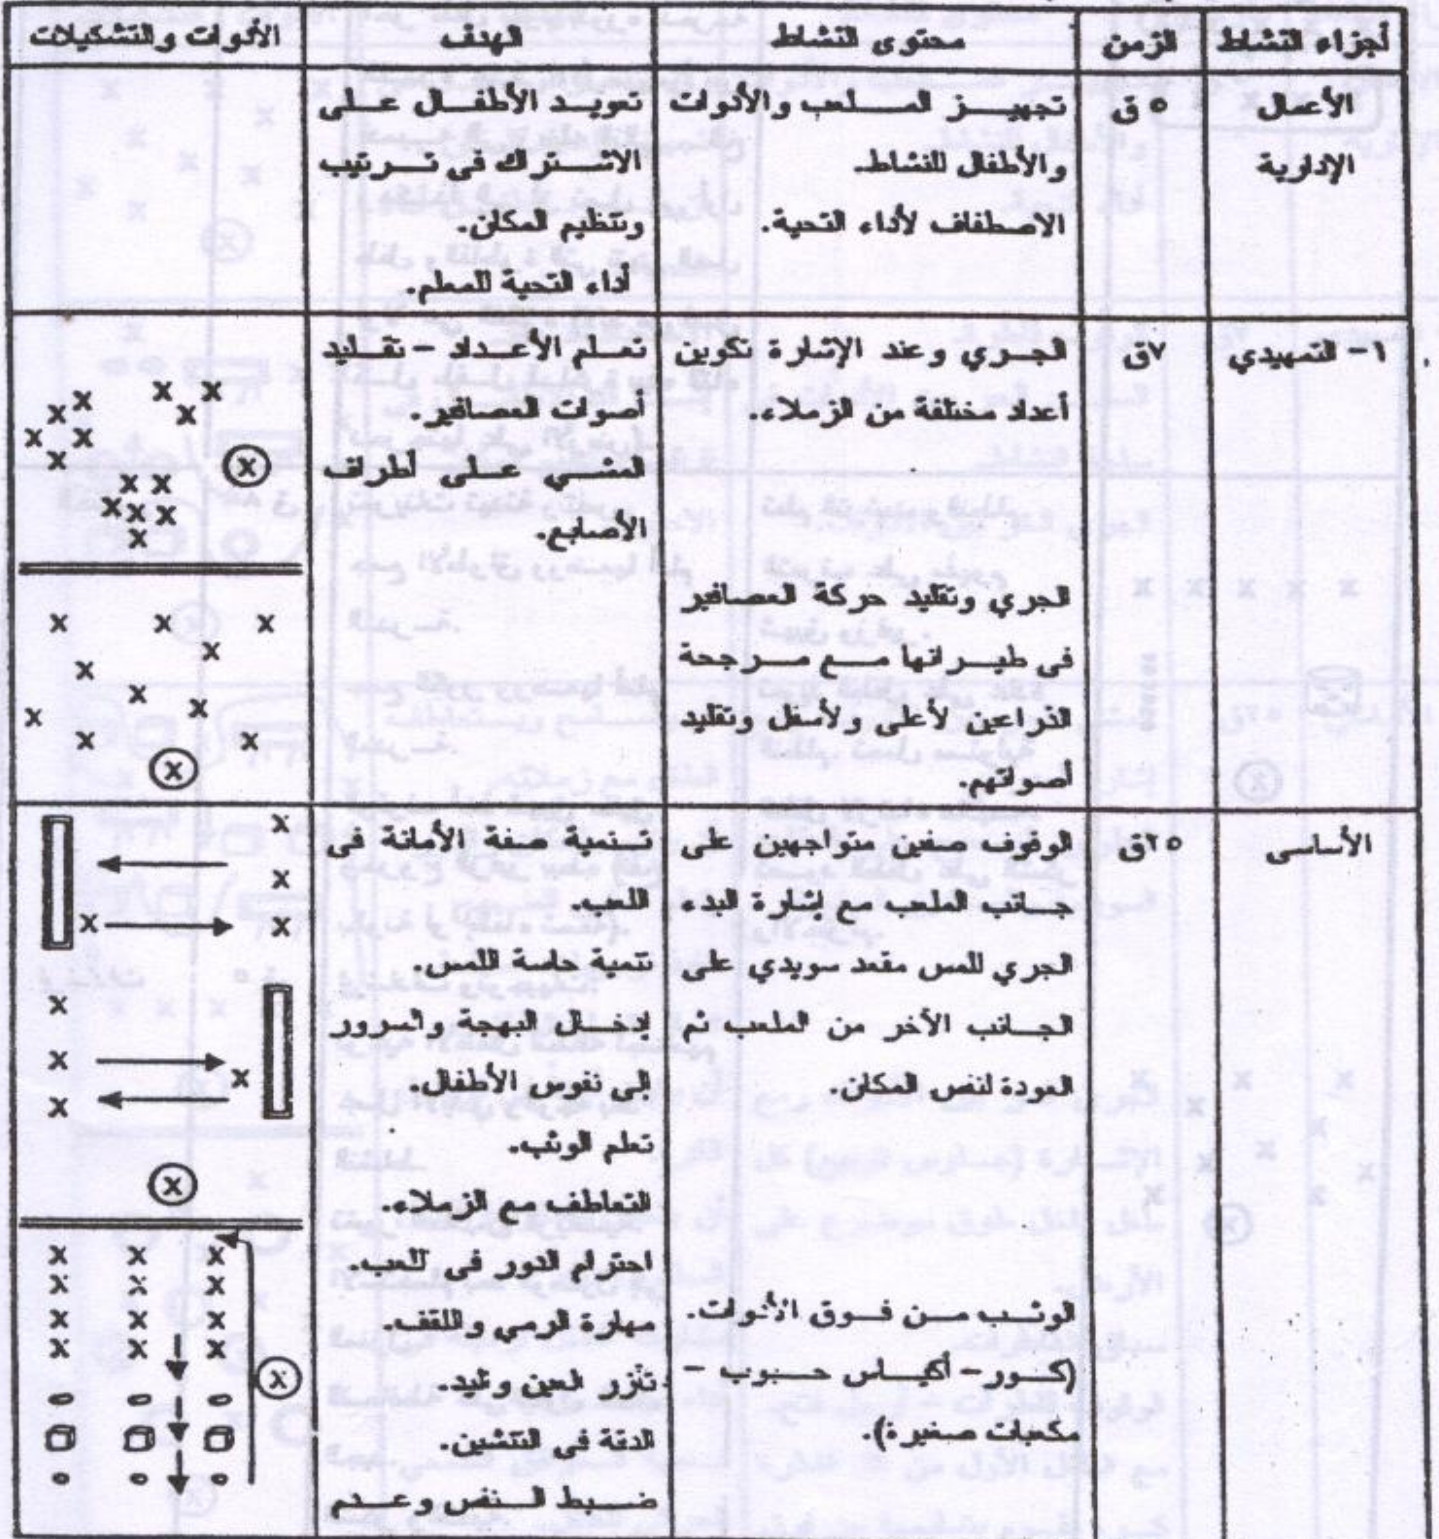 أجزاء النشاط | الزمن | محتوى النشاط | الهدف | الأدوات والتشكيلات
الأعمال
الإدارية
٥ ق
تجهيز الملعب والأدوات
والأطفال للنشاط.
الاصطفاف لأداء التحية.
تعويد الأطفال على
الاشتراك فى ترتيب
وتنظيم المكان.
أداء التحية للمعلم.
١- التمهيدي
٧ق
الجري وعند الإشارة تكوين
أعداد مختلفة من الزملاء.
الجري وتقليد حركة العصافير
فى طيرانها مع مرجحة
الذراعين لأعلى ولأسفل وتقليد
أصواتهم.
تعلم الأعداد – تقليد
أصوات العصافير.
المشي على أطراف
الأصابع.
x x x x x x x x x (x) x x x x x x
x x x x x x x x x x (x)
الأساسى
٢٥ق
الوقوف صفين متواجهين على
جانب الملعب مع إشارة البدء
الجري للمس مقعد سويدي على
الجانب الأخر من الملعب ثم
العودة لنفس المكان.
الوثب من فوق الأدوات.
(كور– أكياس حبوب –
مكعبات صغيرة).
تنمية صفة الأمانة فى
اللعب.
تنمية حاسة اللمس.
إدخال البهجة والسرور
إلى نفوس الأطفال.
تعلم الوثب.
التعاطف مع الزملاء.
احترام الدور فى اللعب.
مهارة الرمي واللقف.
تأزر العين واليد.
الدقة فى التنشين.
ضبط النفس وعدم
x
x
x x
x
x x
x
(x)
x x x
x x x
x x x
x x x
(x)